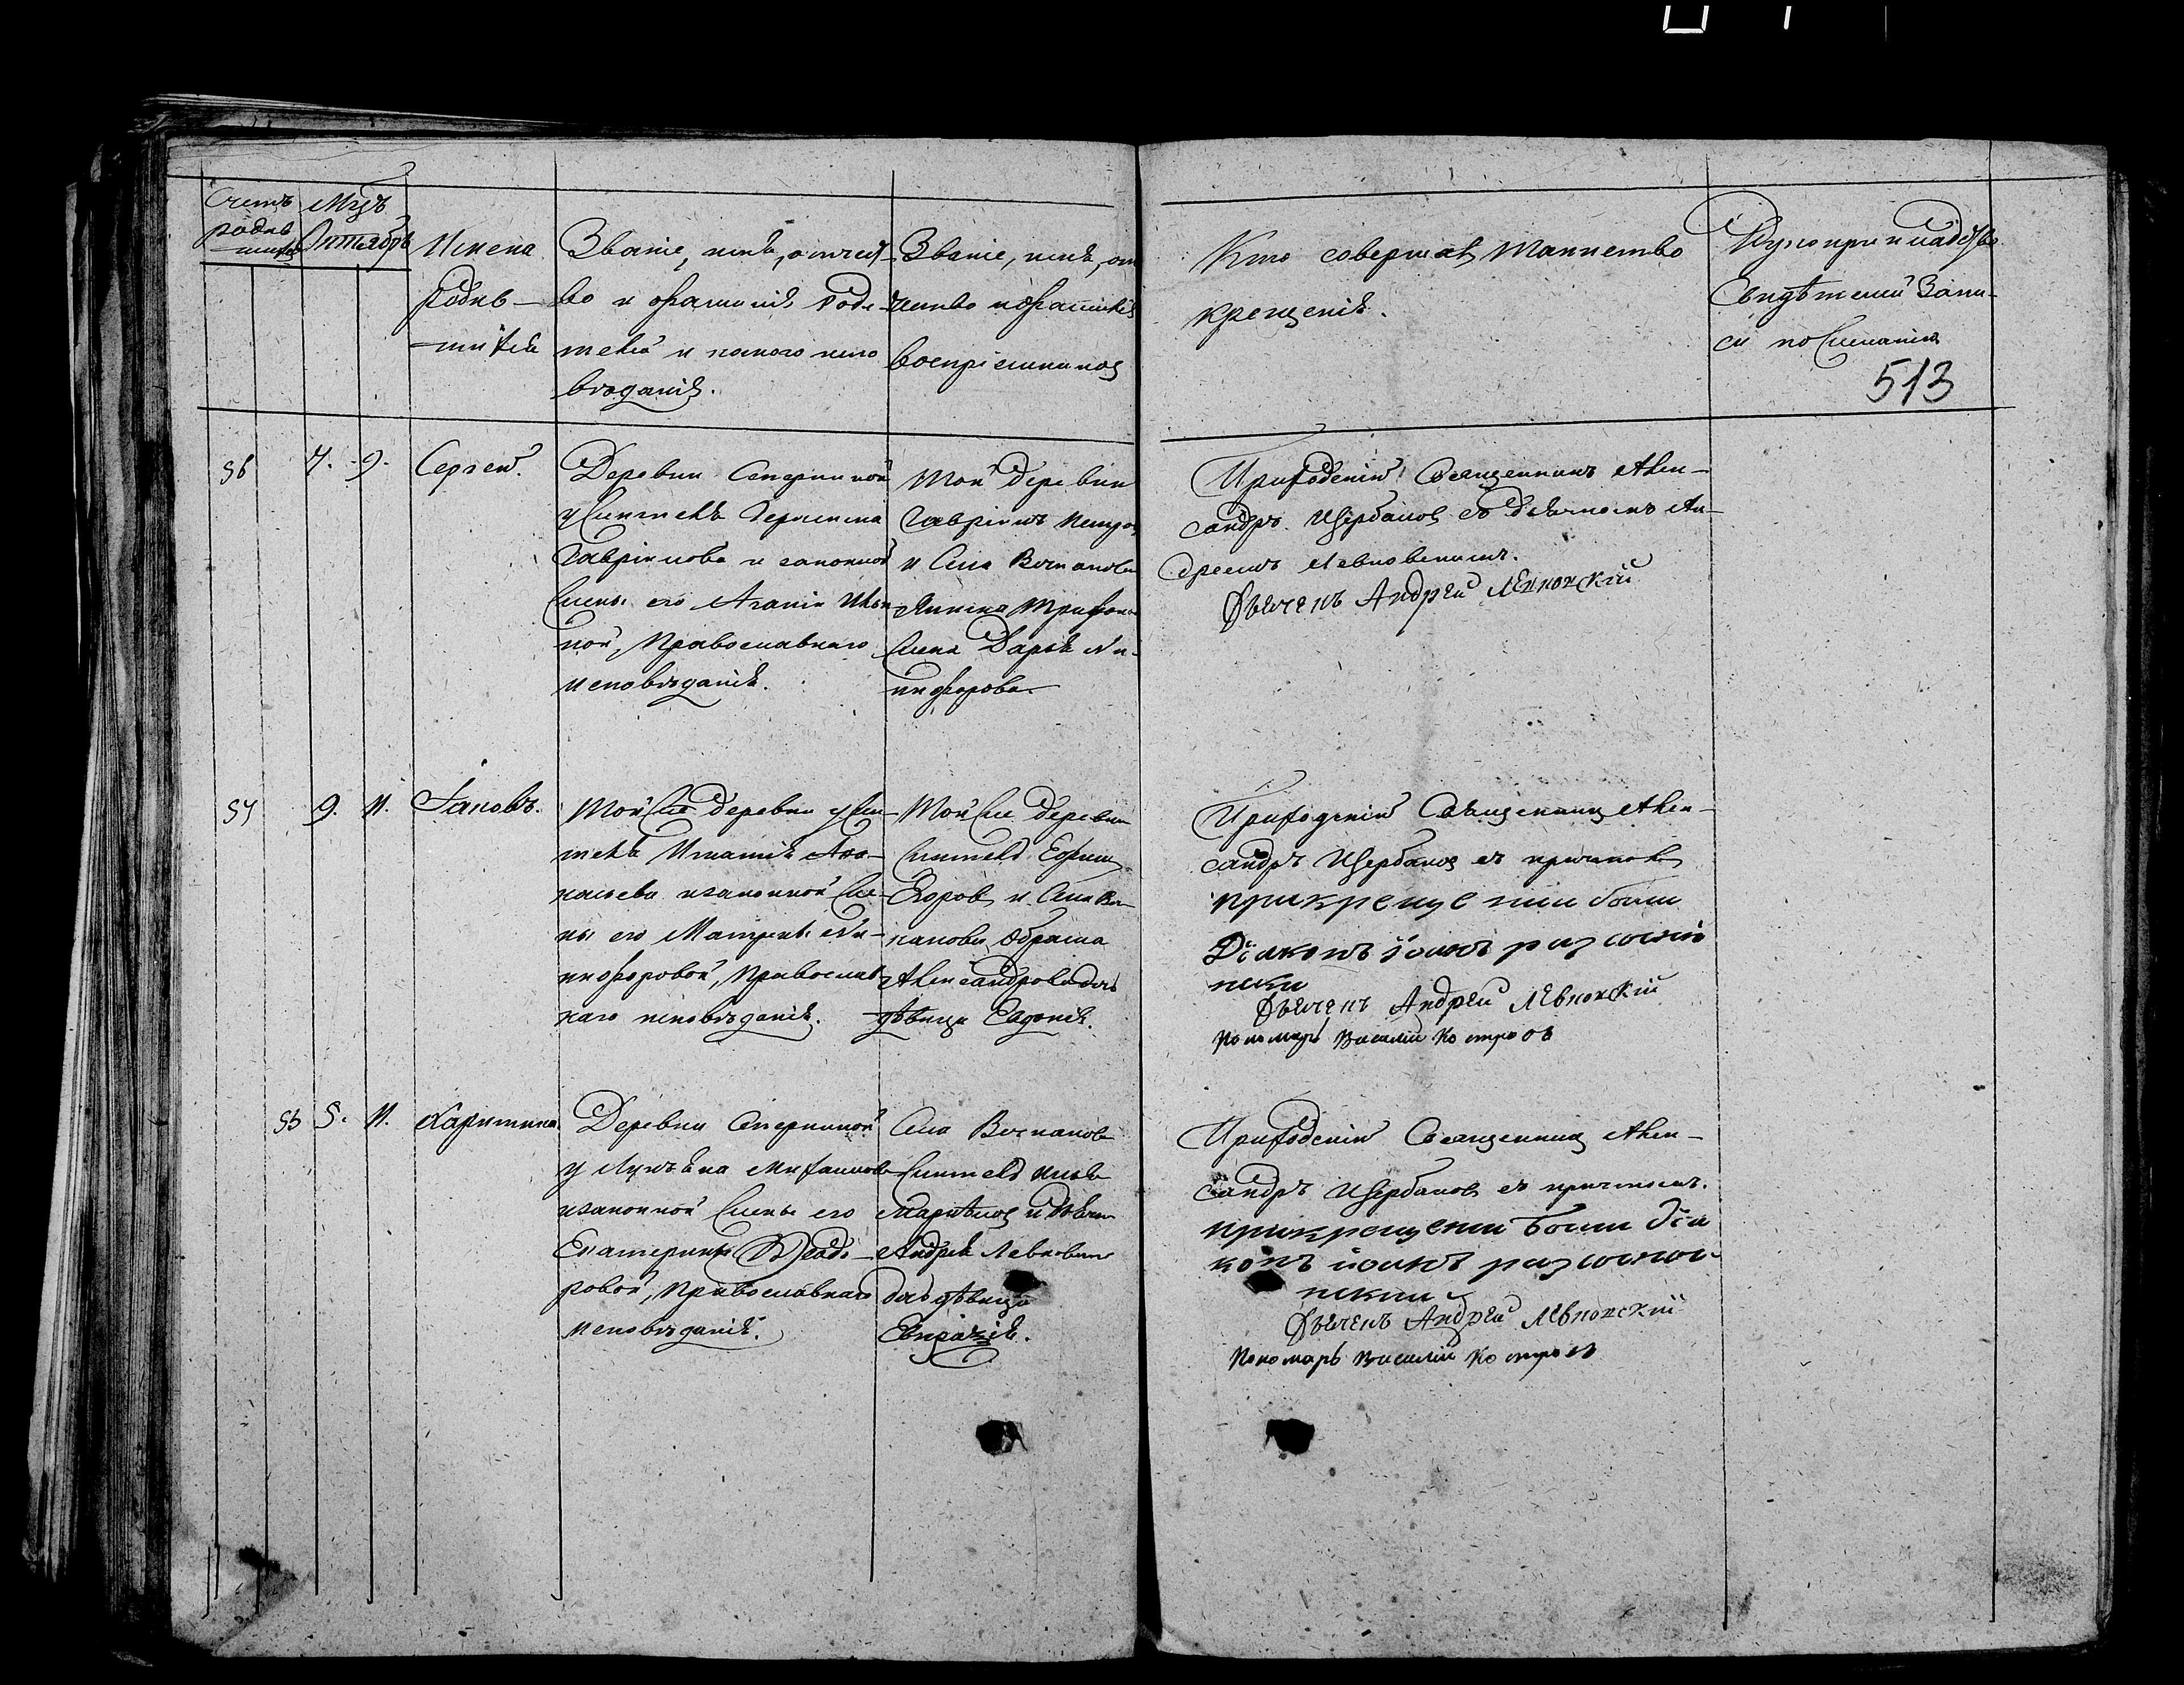 Счетъ родив-шихся
Мцъ Октябрь
Имена родив-шихся
Званіе, имя, отчест-
во и фамилія роди-
телей и какого испо
вѣданія.
Званіе, имя, от
чество и фамилія
воспріемниковъ
Кто совершалъ Таинство
крещенія.
Рукоприкладство
свидѣтелей запи-
си по желанію
513
56 7. 9. Сергей.
Деревни
жителя Герасима
Гавріилова и законной
жены его Агапіи
ной, Православнаго
исповѣданія.
Той деревни
Гавріилъ Петров
и села
Трифона
жена Дарья Ни-
кифорова.
Приходскій Священникъ Алек-
сандръ Щербаковъ съ дьячкомъ Ан-
дреемъ Левковскимъ.
Дьячекъ Андрей Левковскій
57 9. 11. Іаковъ.
Той же деревни у жи-
теля Игнатія Афа-
насьева и законной же-
ны его Матрены Ни-
кифоровой, Православ-
наго исповѣданія.
Той же деревни
житель Ефимъ
Егоровъ и села
Александрова дочь
дѣвица
Приходскій Священникъ Алек-
сандръ Щербаковъ съ причтомъ
при крещеніи были
Діаконъ Іоаннъ
Дьячекъ Андрей Левковскій
Пономарь Василій Костровъ
53 5. 11. Харитина
Деревни
у Лукьяна Михаилова
и законной жены его
Екатерины Ѳеодо-
ровой, Православнаго
исповѣданія.
Села
житель Илья
и дьячка
Андрея Левковскаго
дочь дѣвица
Приходскій Священникъ Алек-
сандръ Щербаковъ съ причтомъ.
при крещеніи были діа
конъ Іоаннъ
Дьячекъ Андрей Левковскій
Пономарь Василій Костровъ